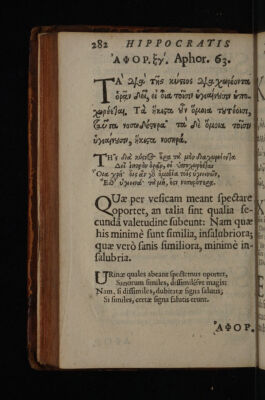 282 HIPPOCRATIS
ἈΦΟΡ. ξγ΄. Aphor. 63.
ΤΑ διὰ τῆς κύστιος διαχωρέοντα
ὁρῆν δεῖ, εἰ οἷα τοῖσιν ὑγιαίνουσιν ὑπο-
χωρέεται, Τὰ ἥκιστα οὖν ὅμοια τουτέοισι,
ταῦτα νοσερώτερα· τὰ δὲ ὅμοια τοῖσιν
ὑγιαίνουσιν, ἥκιστα νοσηρά.
Τῆς διὰ κύστεως
QUæ per vesicam meant spectare
oportet, an talia sint qualia se-
cundâ valetudine fabeunt: Nam quæ
his minimè sunt similia, insalubriora;
quæ verò sanis similiora, minimè in-
salubria.
URinæ quales abeant spectemus oportet,
Sanorum similes, dissimiléſve magis:
Nam, si dissimiles, dubitatæ signa salutis;
Si similes, certæ signa salutis erunt.
ἈΦΟΡ.